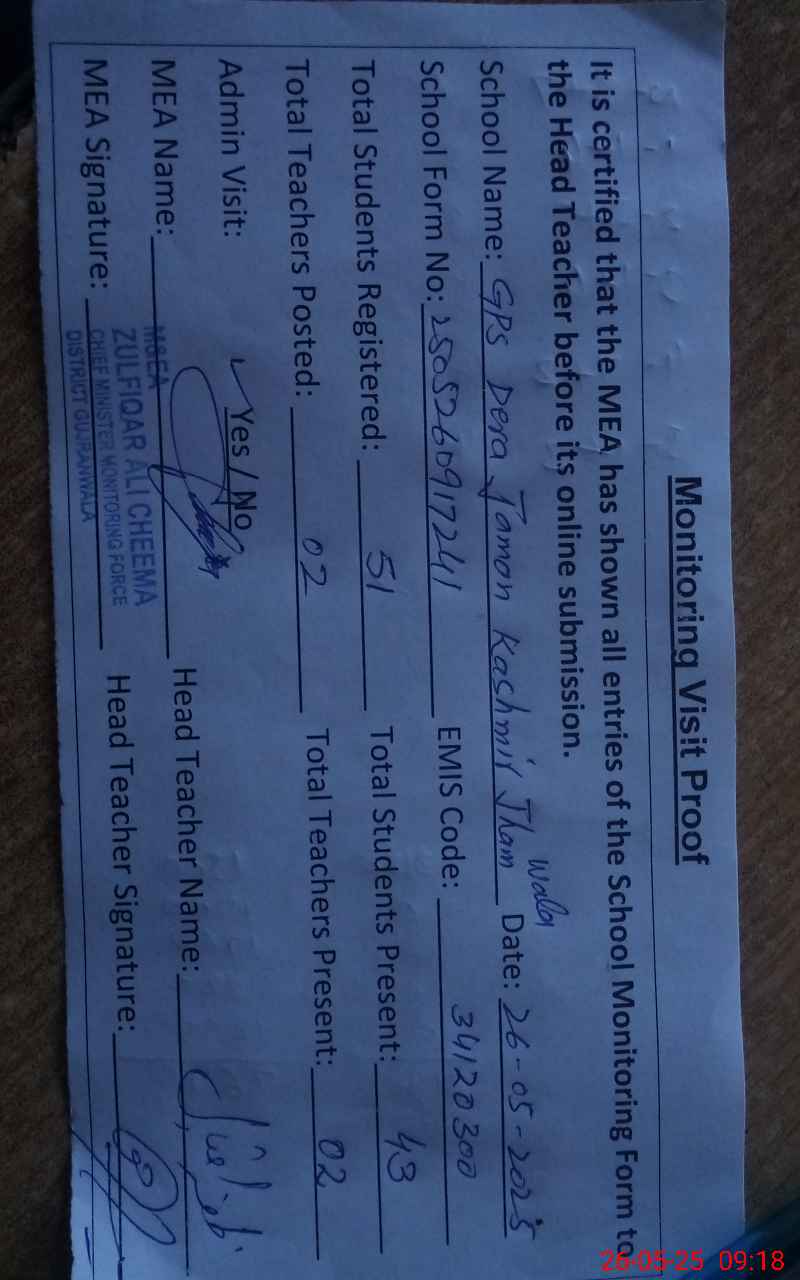 Monitoring Visit Proof
It is certified that the MEA has shown all entries of the School Monitoring Form to
the Head Teacher before its online submission.
School Name: GPS Dera Jamon Kashmir Jham Wala Date: 26-05-2025
School Form No: 2505260917241 EMIS Code: 34120300
Total Students Registered: 51 Total Students Present: 43
Total Teachers Posted: 02 Total Teachers Present: 02
Admin Visit: Yes / No
MEA Name: Head Teacher Name:
MEA Signature: Head Teacher Signature:
M&EA
ZULFIQAR ALI CHEEMA
CHIEF MINISTER MONITORING FORCE
DISTRICT GUJRANWALA
26-05-25 09:18